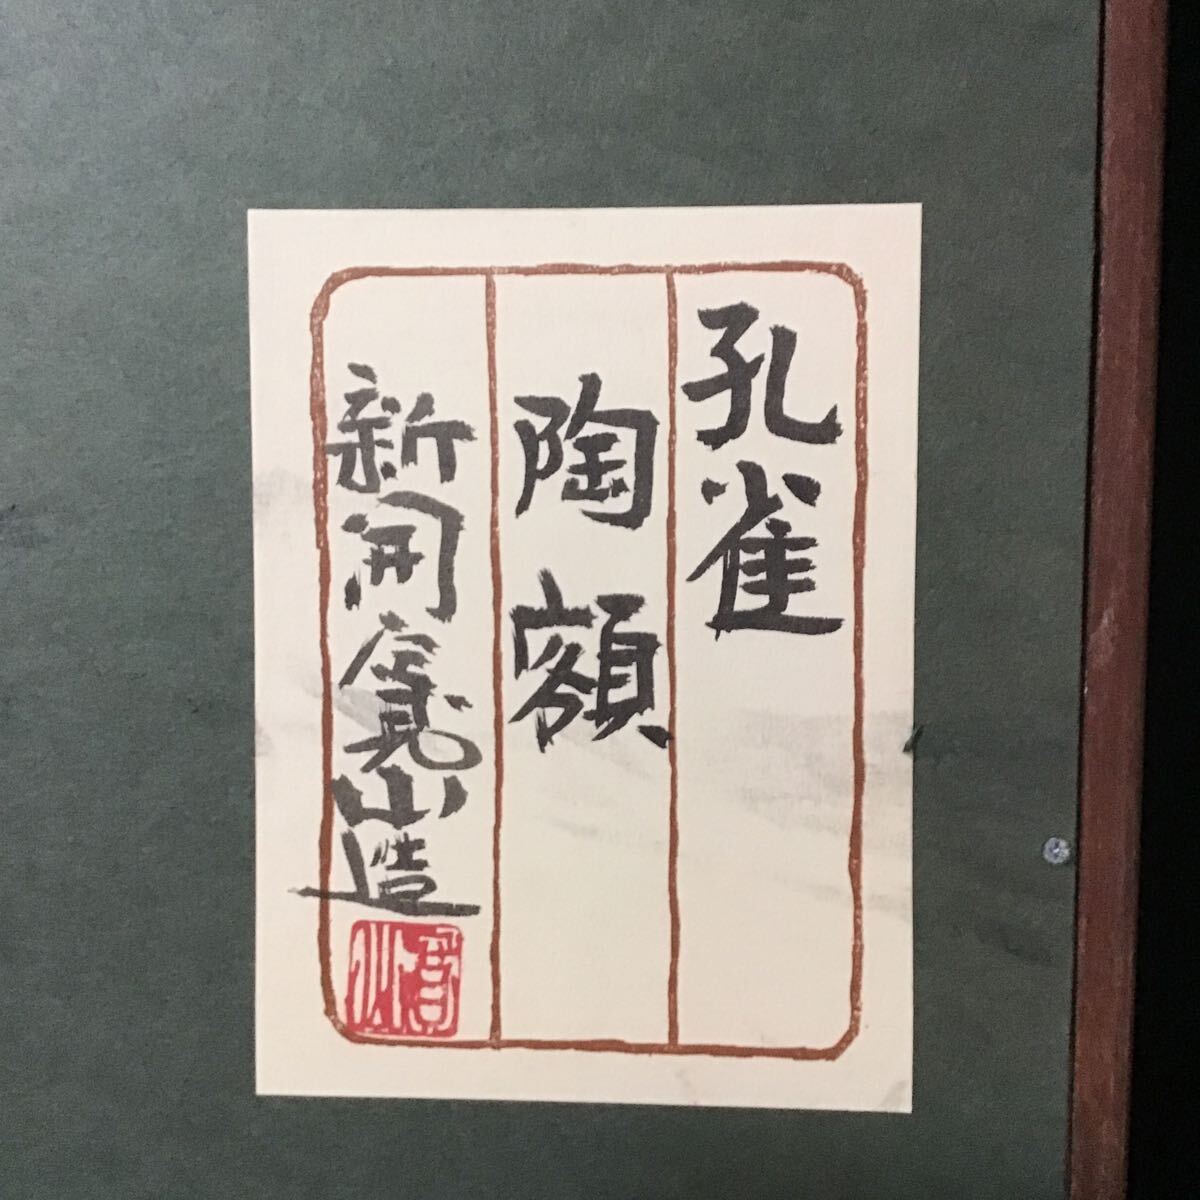 孔雀
陶額
新開寛山造